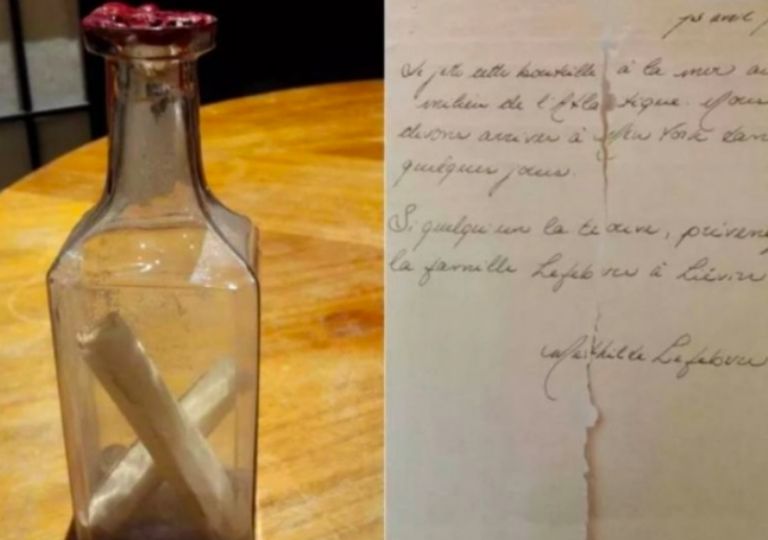 avril
Je jette cette bouteille à la mer au
milieu de l'Atlantique. Nous
devons arriver à New York dans
quelques jours.
Si quelqu'un la trouve, prévenez
la famille Lefebvre à Liévin
Mathilde Lefebvre